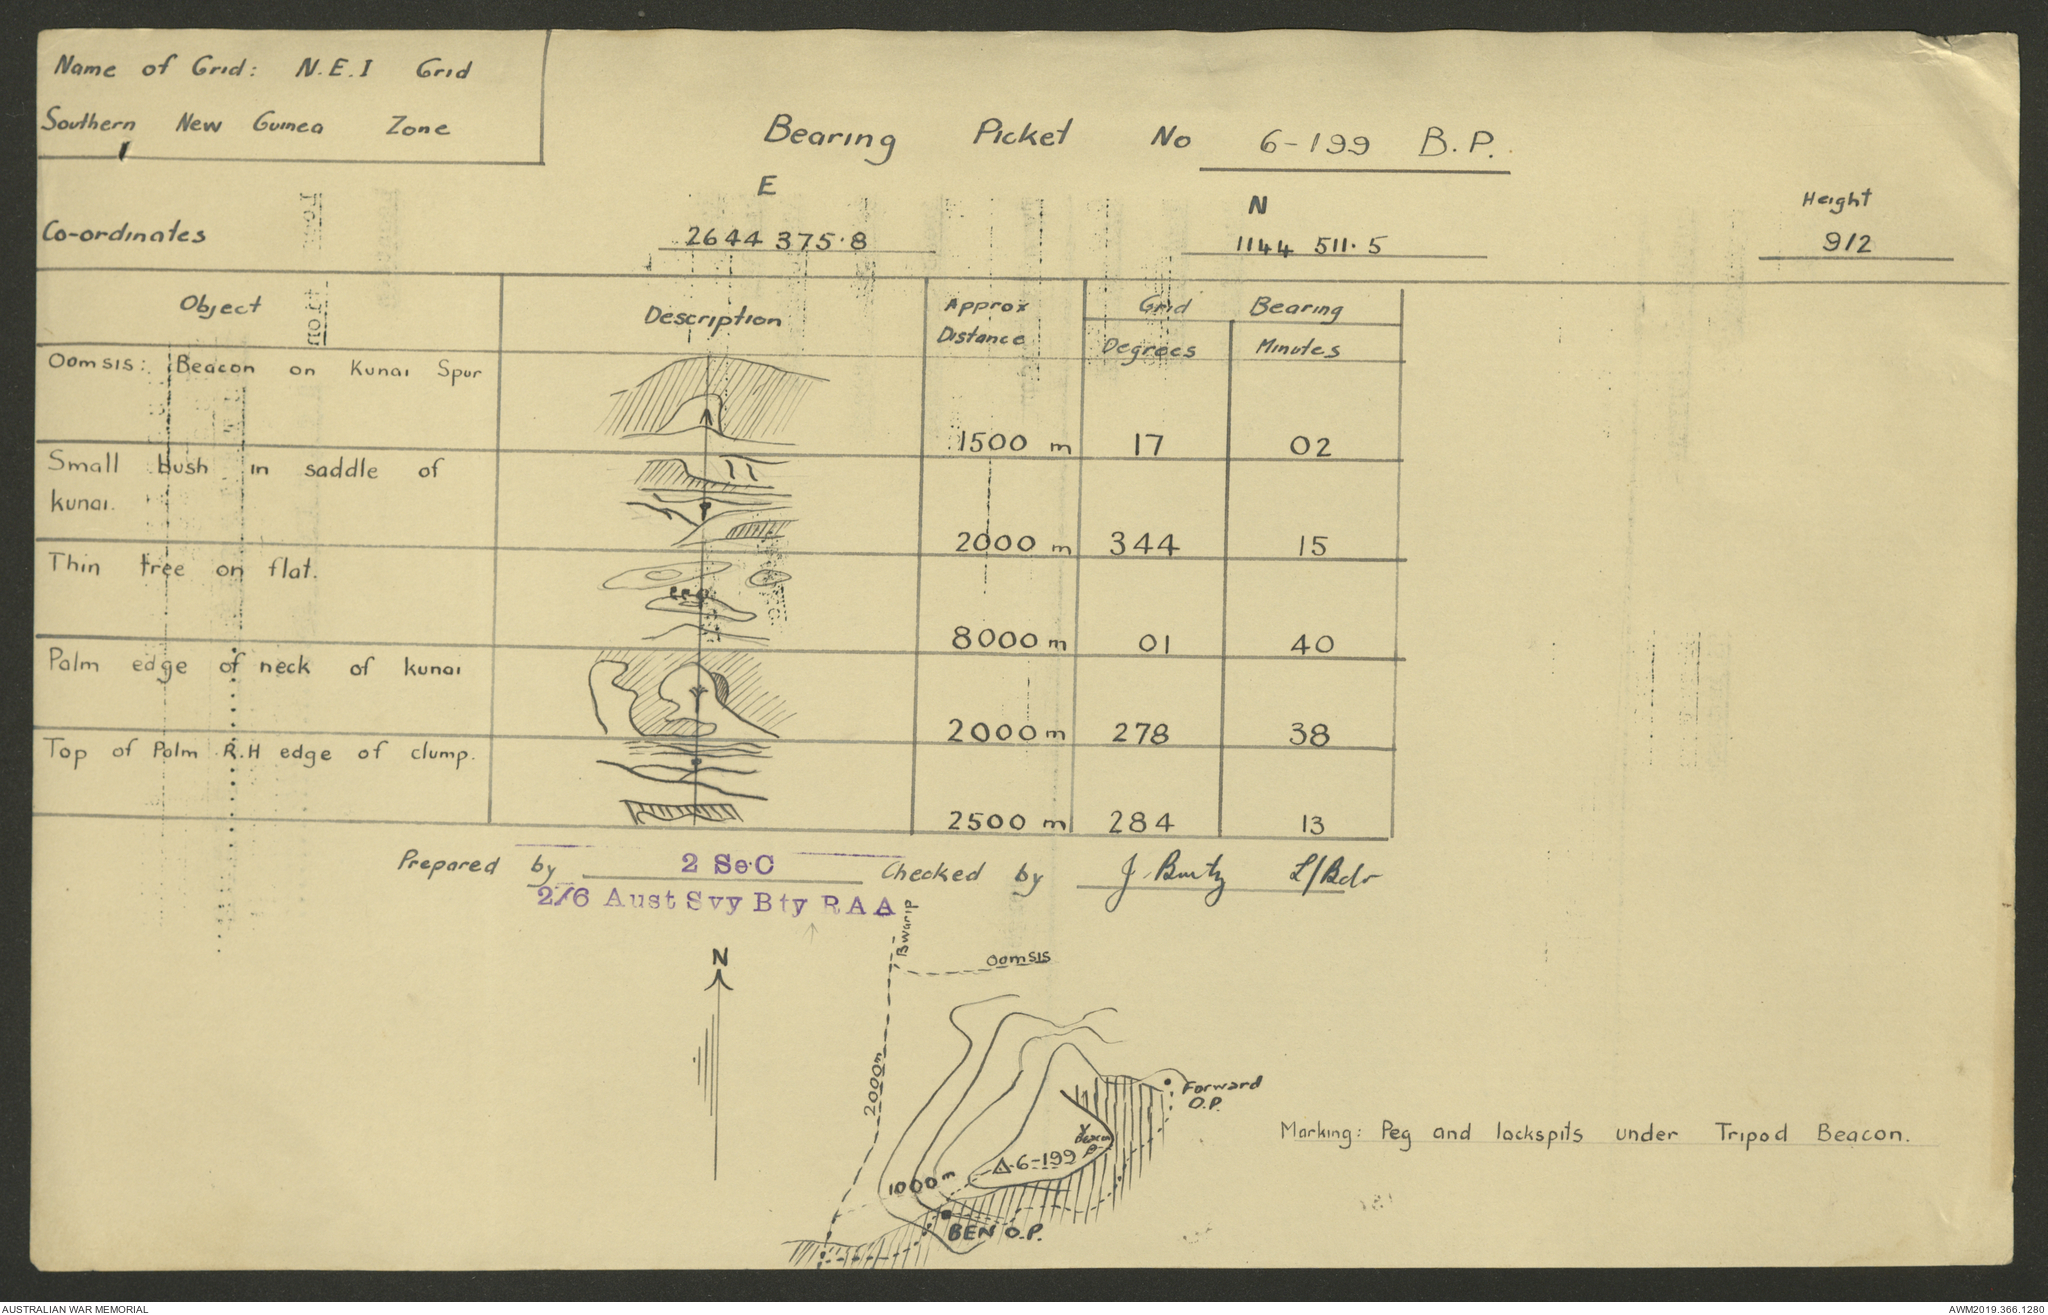 Name of Grid: N.E.I Grid
Southern New Guinea Zone
Bearing Picket No 6-199 B.P.
E
N
Height
Co-ordinates 2644 375.8 1144 511.5 912
Object Description Approx Distance Grid Bearing
Degrees Minutes
Oomsis: Beacon on Kunai Spur
1500 m 17 02
Small bush in saddle of
kunai.
2000 m 344 15
Thin tree on flat.
8000 m 01 40
Palm edge of neck of kunai
2000 m 278 38
Top of Palm R.H edge of clump.
2500 m 284 13
Prepared by 2 Sec Checked by J. L/Bdr
2/6 Aust Svy Bty RAA
Bwarip
N
Oomsis
2000m
Forward
O.P.
Beacon
6-199
Marking: Peg and lockspits under Tripod Beacon.
1000 m
BEN O.P.
AUSTRALIAN WAR MEMORIAL
AWM2019.366.1280